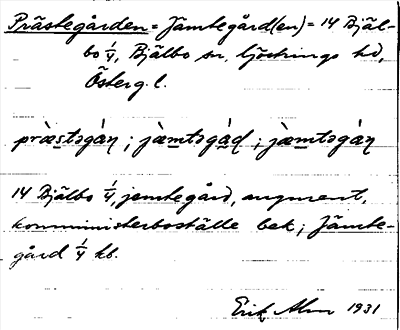 Prästegården = Jämtegård(en) = 14 Bjäl-
bo 1/4, Bjälbo sn, Göstrings hd,
Österg. l.
prästəgàɳ ; jàmtəgàɖ ; jàmtəgàɳ
14 Bjälbo 1/4, jemtegård, augment,
komministerboställe bek ; Jämte-
gård 1/4 kb.
Erik Alm 1931